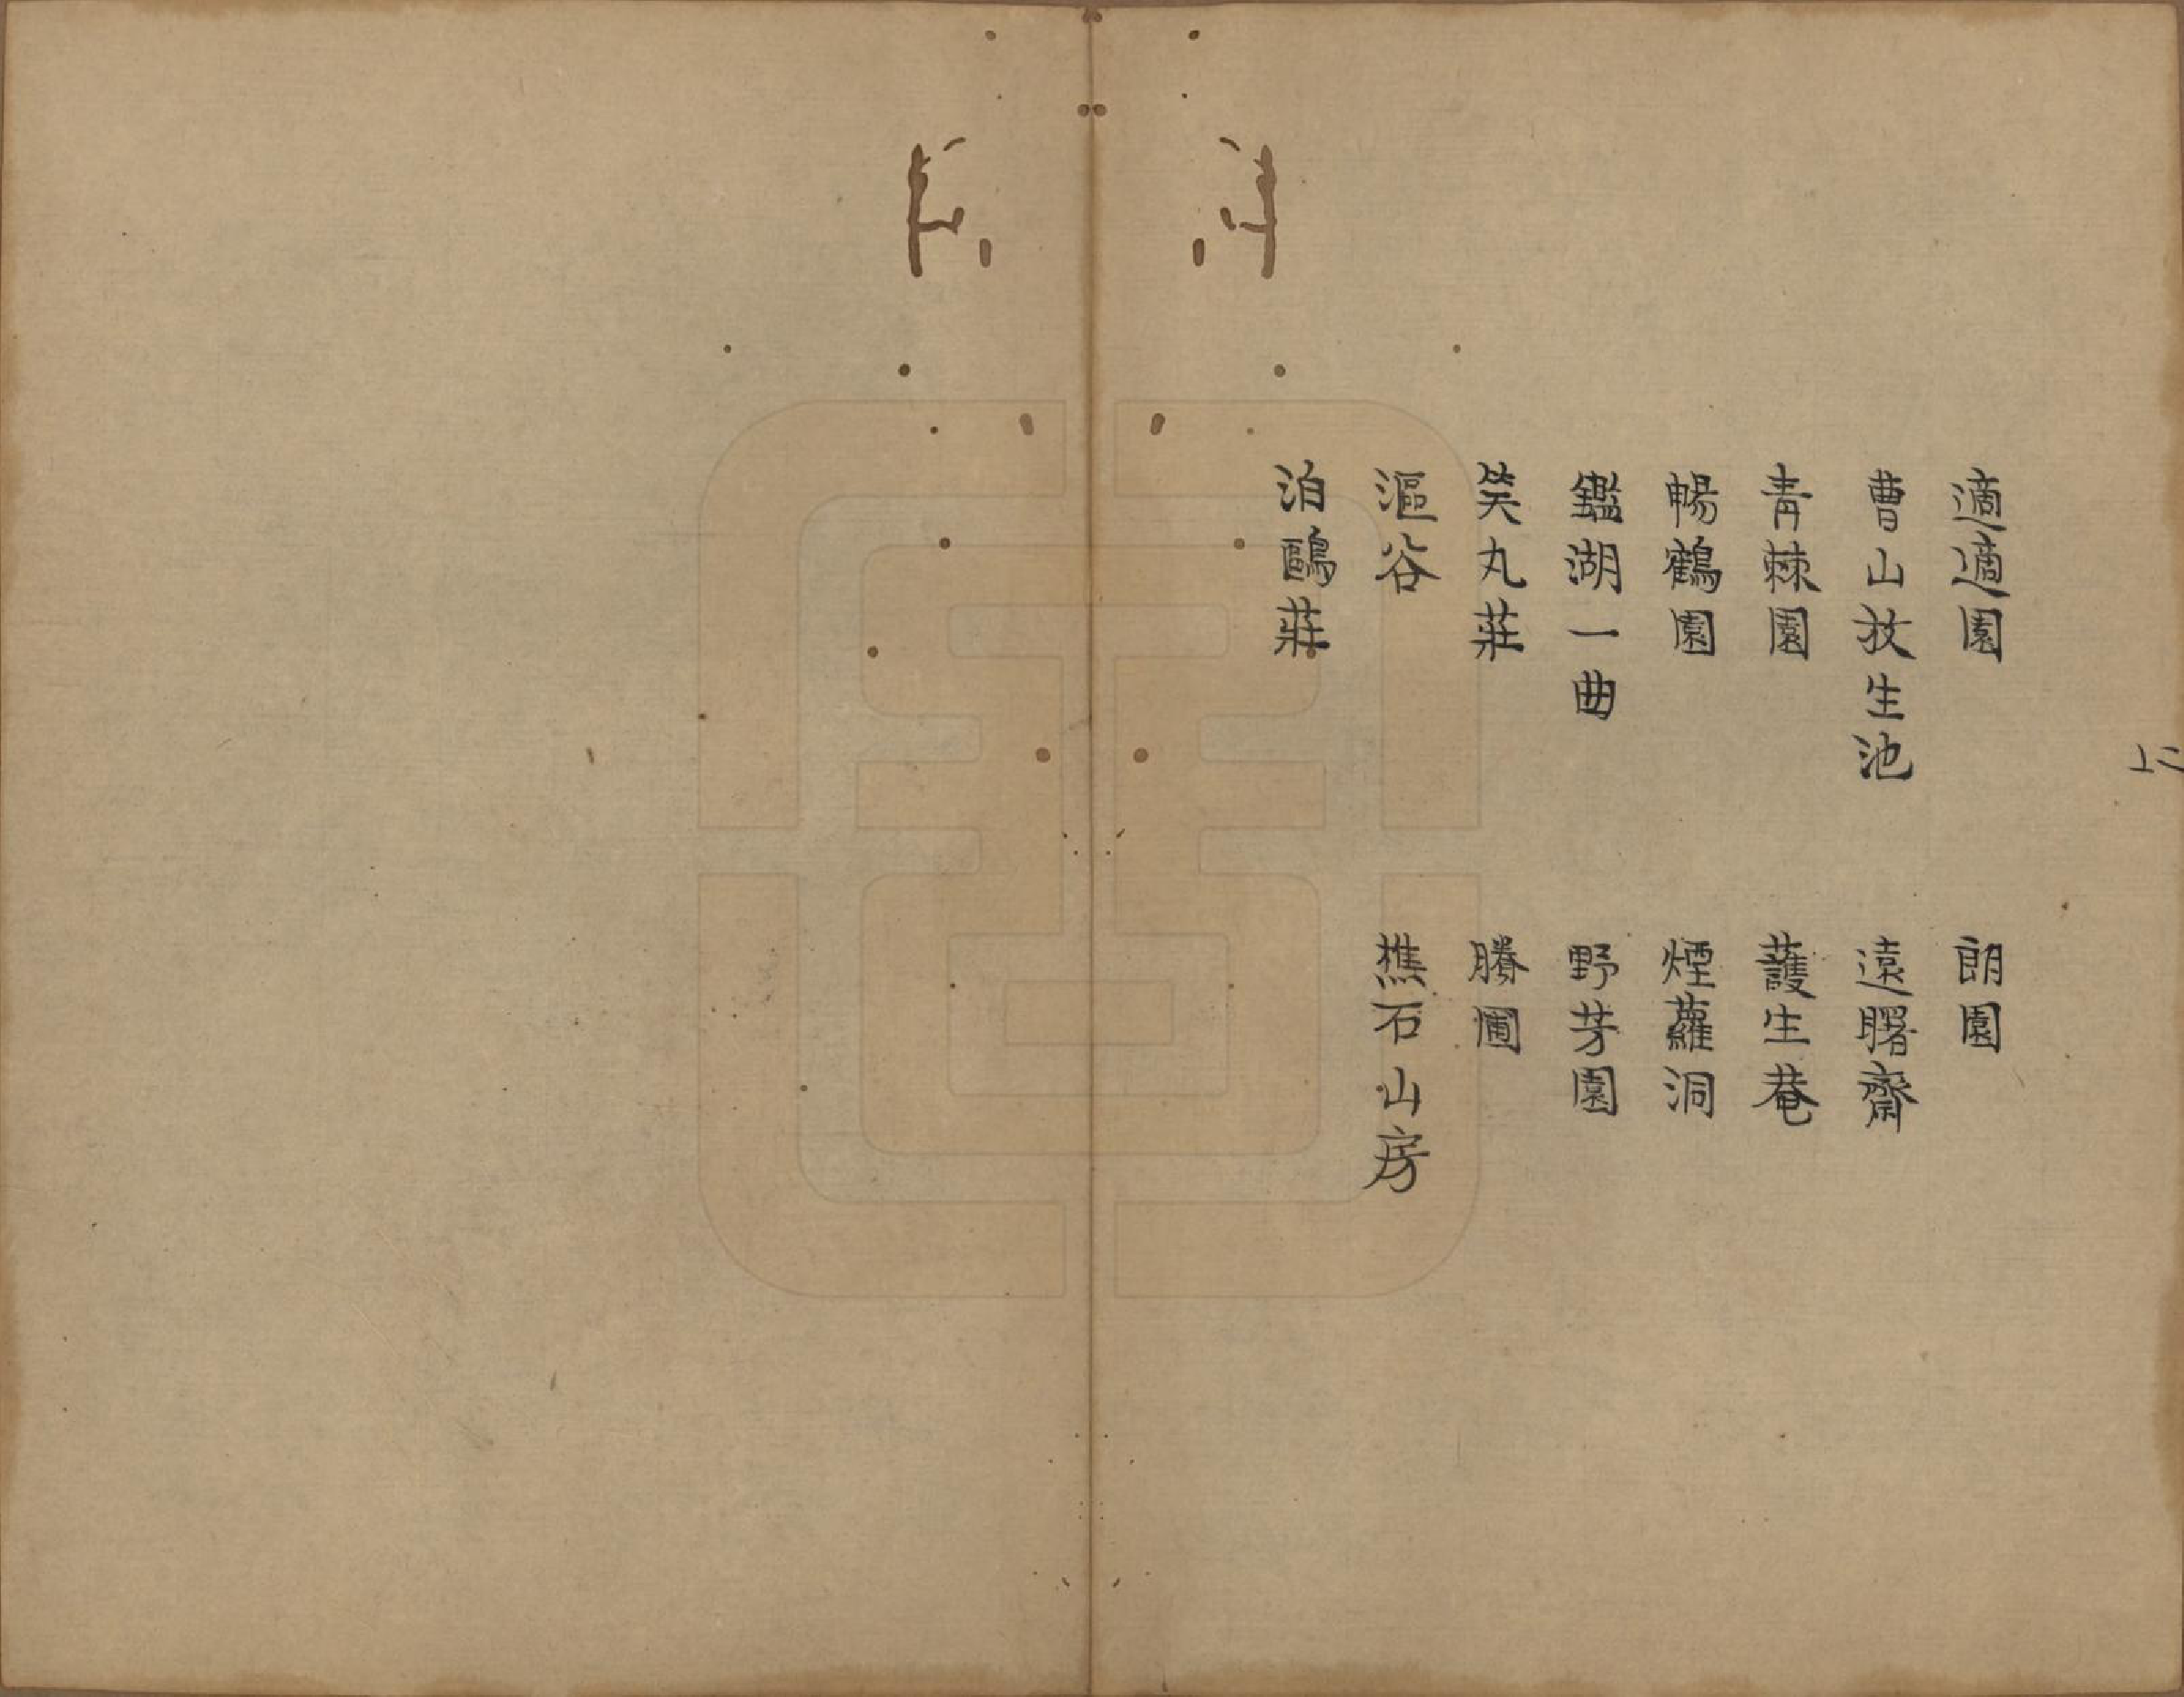 適適園
朗園
曹山放生池
遠曙齋
青棘園
護生菴
暢鶴園
煙蘿洞
鑑湖一曲
野芽園
笑丸莊
勝圃
漚谷
樵石山房
泊鷗莊